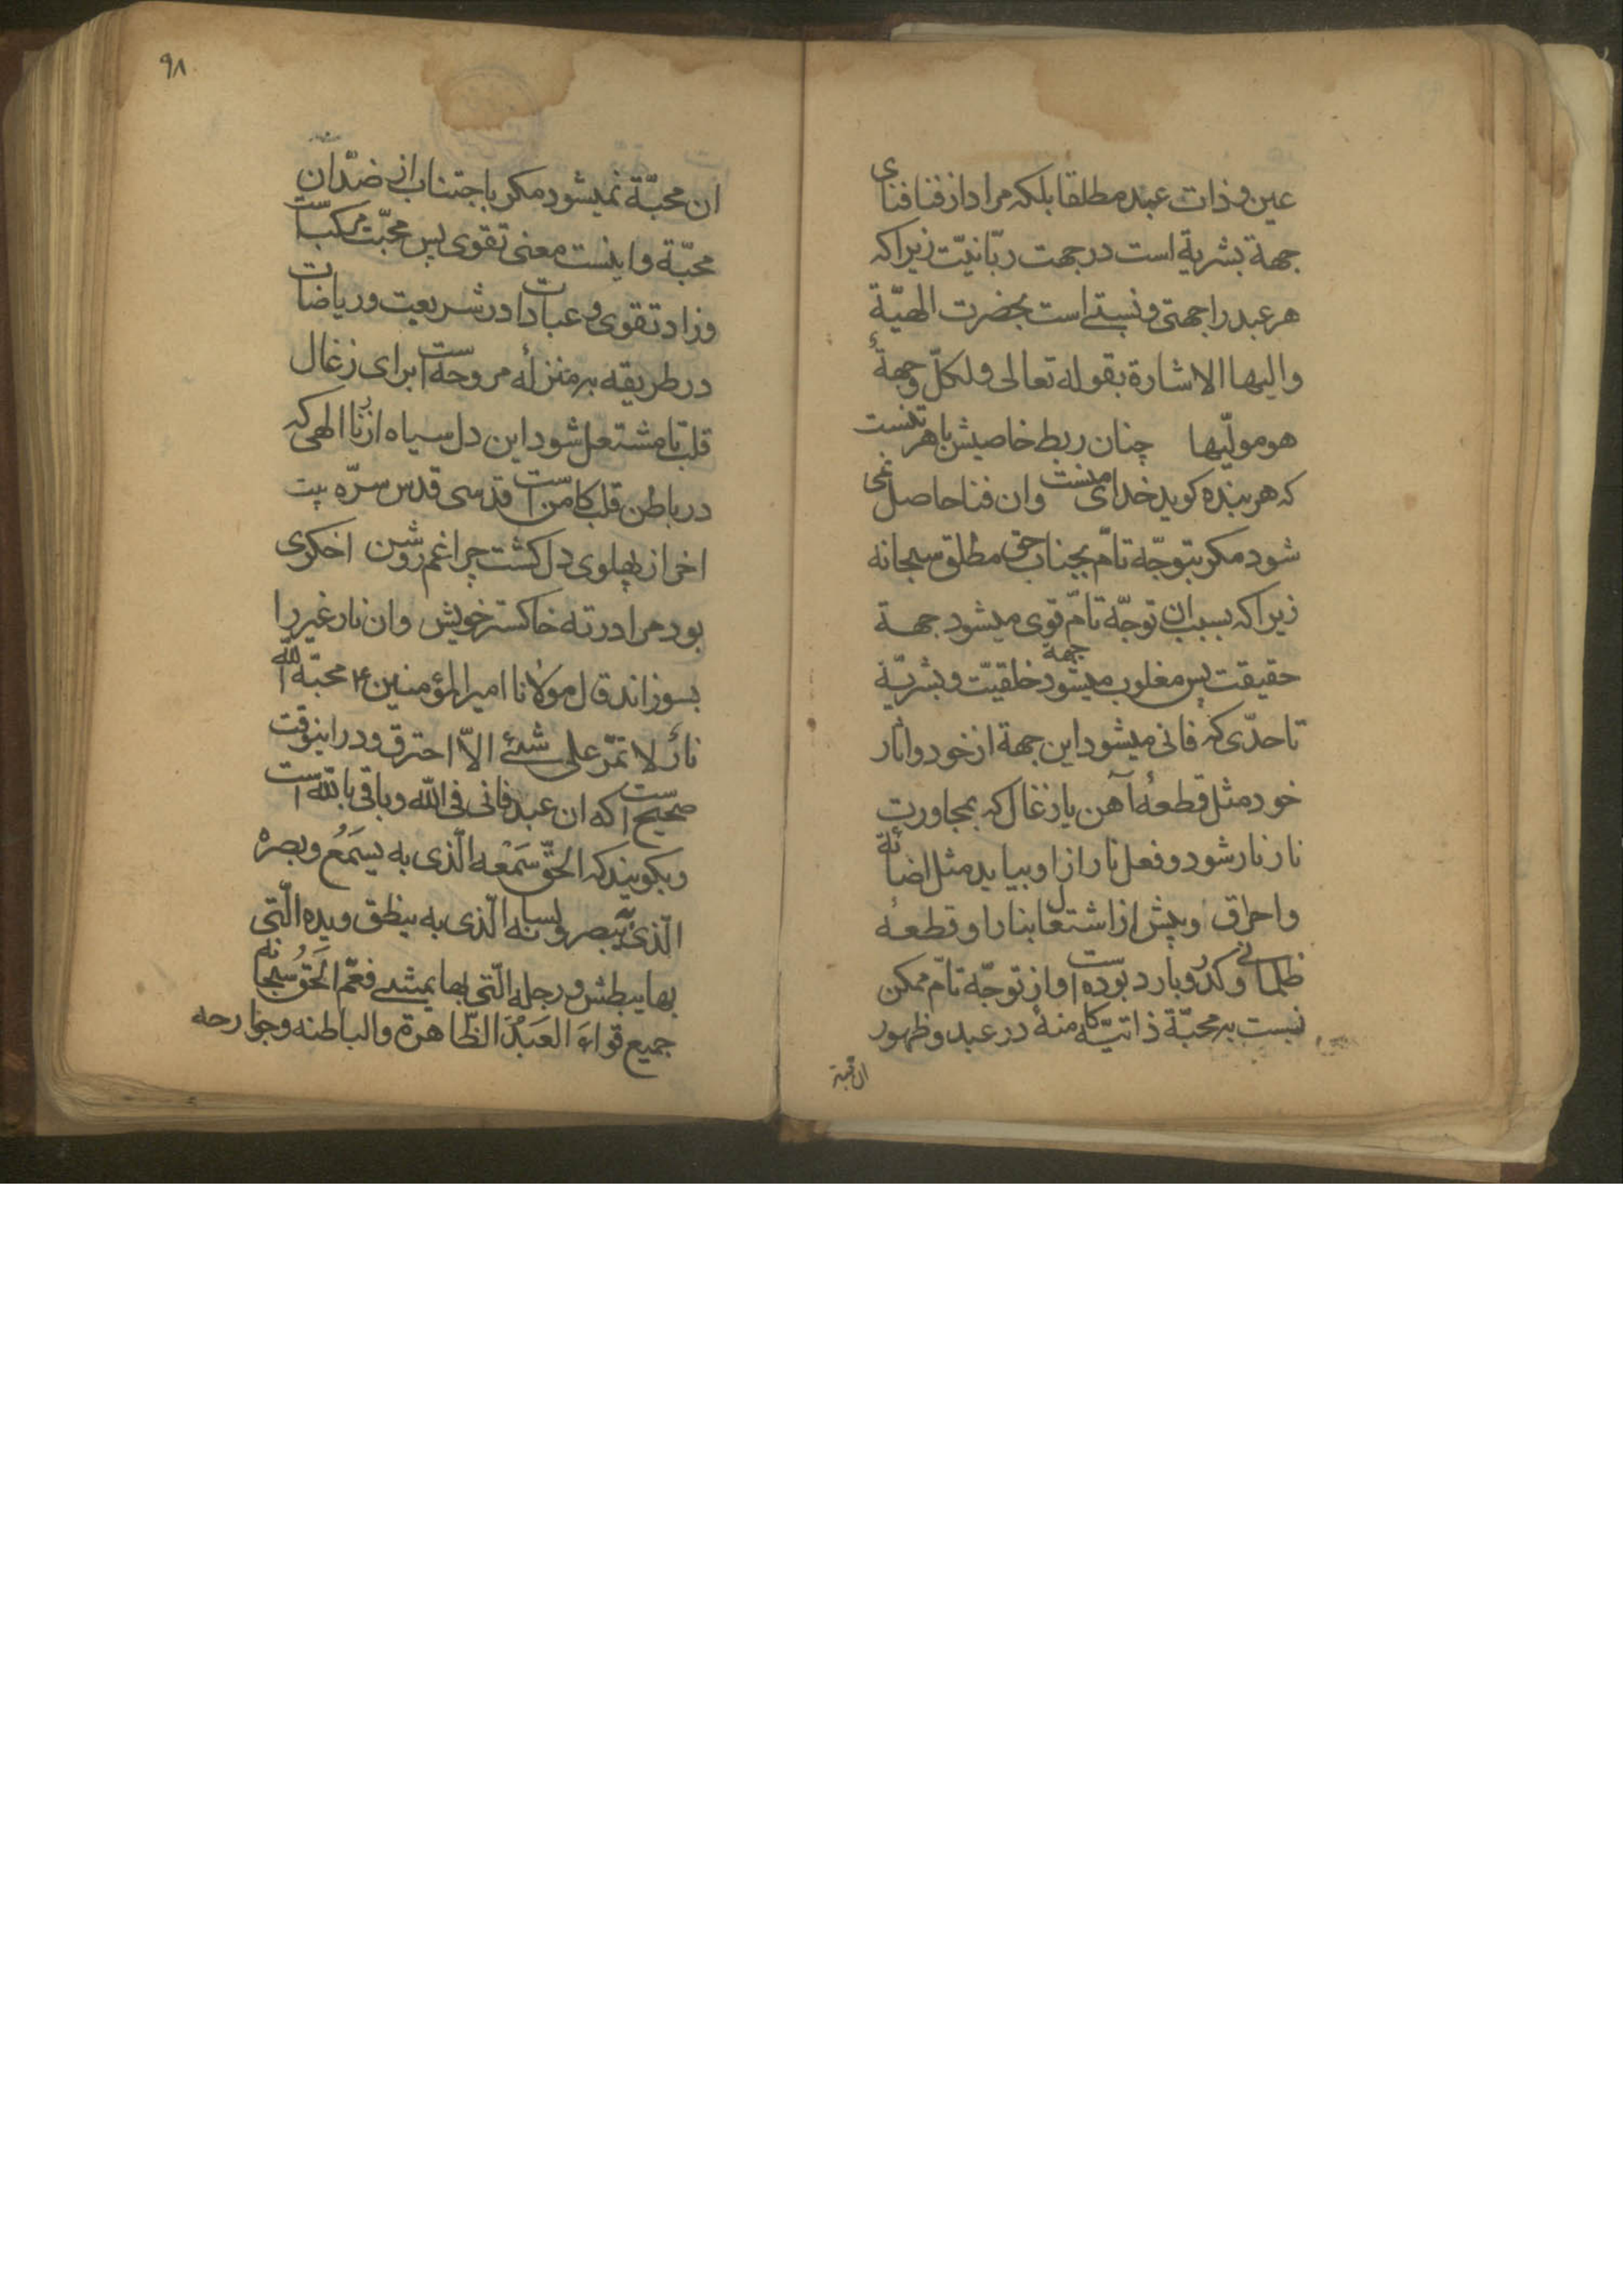 عین و ذات عبد مطلقا بلکه مراد از فنا فنای
جهة بشریة است در جهت ربّانیّت زیرا که
هر عبد را جهتی و نسبتی است بحضرت الهیّة
والیها الاشارة بقوله تعالی ولکلّ وجهةٌ
هو مولّیها چنان ربط خاصیش با هر تنست
که هر بنده کوید خدای منست وان فنا حاصل نمی
شود مکر بتوجّه تامّ بجناب حق مطلق سبحانه
زیرا که بسبب ان توجّه تامّ قوی میشود جهة
حقیقت پس مغلوب میشود جهة خلقیّت و بشریّة
تا حدّی که فانی میشود این جهة از خود واثار
خود مثل قطعهٔ آهن یا زغال که بمجاورت
نار نار شود و فعل نار از او بیاید مثل اضائة
واحراق وپیش از اشتعال بنار او قطعهٔ
ظلمانی و کدر و بارد بوده است واز توجّه تامّ ممکن
نیست به محبّة ذاتیّه کامنهٔ در عبد و ظهور
ان محبة
۹۸
ان محبّة نمیشود مکر باجتناب از ضدّ ان
محبّة واینست معنی تقوی پس محبّت مرکب است
وزاد تقوی و عبادات در شریعت وریاضات
در طریقه به منزلهٔ مروحه است برای زغال
قلب تا مشتعل شود این دل سیاه از نار الهی که
در باطن قلب کامن است قدسی قدس سرّه بیت
اخر از پهلوی دل کشت چراغم روشن اخکری
بود مرا در ته خاکستر خویش وان نار غیر را
بسوزاند قال مولانا امیر المؤمنین ع محبّة اللّٰه
نارٌ لا تمرّ علی شیئ الاّ احترق ودر اینوقت
صحیح است که ان عبد فانی فی اللّٰه وباقی باللّٰه است
وبکویند که الحقّ سَمْعه الّذی به یسَمَعُ وبصرهْ
الّذی به یبصر ولسانه الّذی به ینطق ویده الّتی
بها یبطش ورجله الّتی بها یمشی فعمّ الحَقُ سُبحانه
جمیع قواءَ العَبْدَ الظّاهرة والباطنه وجوارحه